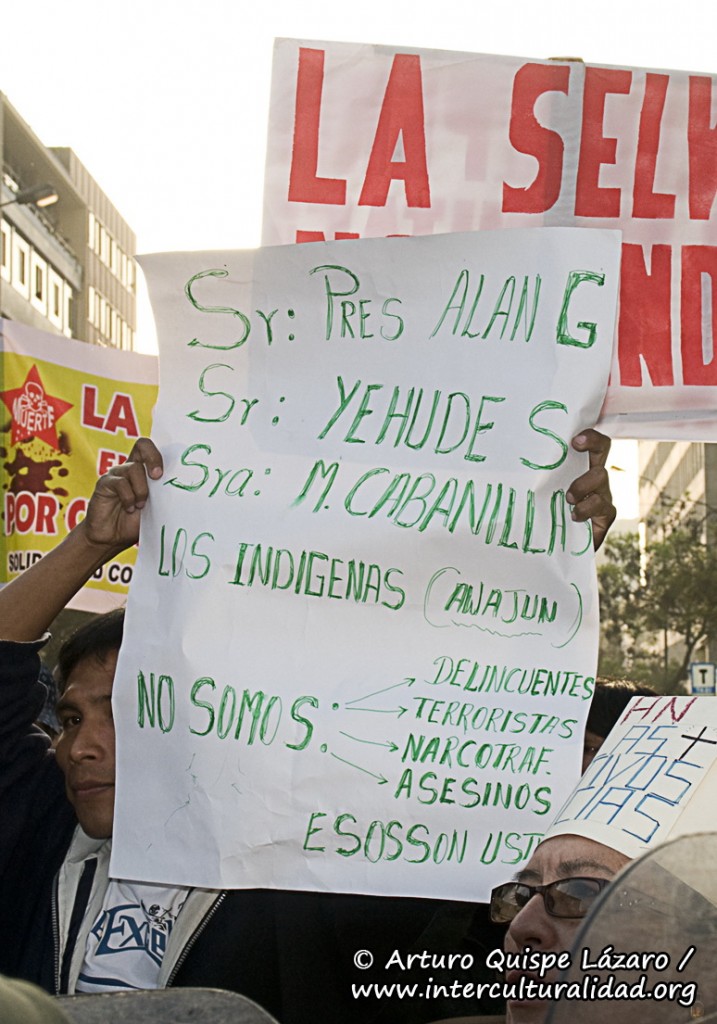 LA SELV
Sr: PRES ALAN G
Sr: YEHUDE S
Sra: M. CABANILLAS
LOS INDIGENAS (AWAJUN)
NO SOMOS:
DELINCUENTES
TERRORISTAS
NARCOTRAF.
ASESINOS
ESOSSON UST
MUERTE
LA
POR
© Arturo Quispe Lázaro /
www.interculturalidad.org